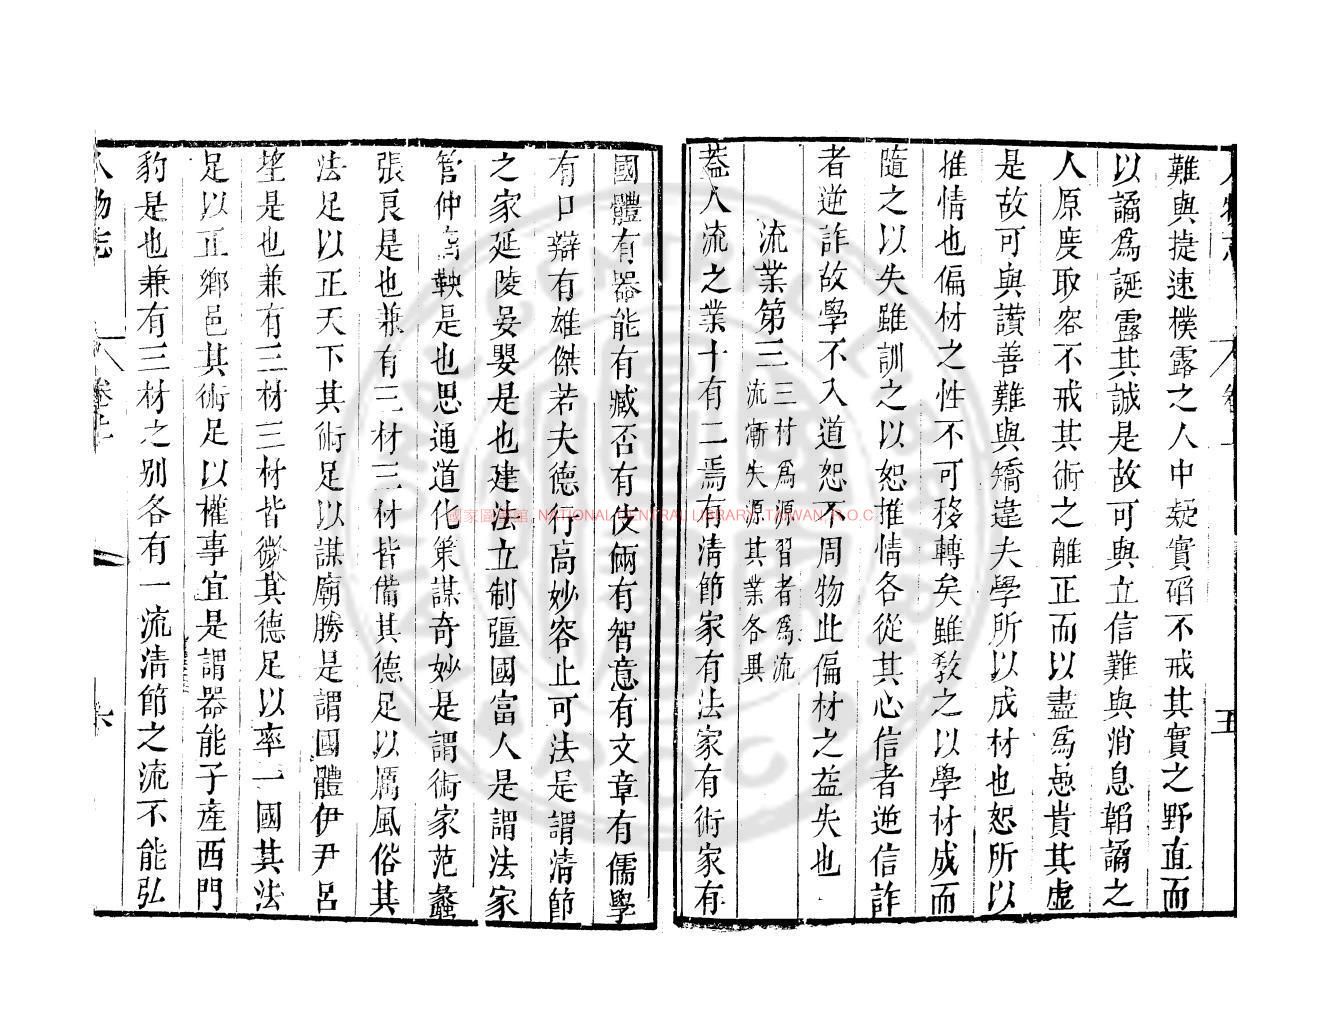 難與捷速樸露之人中疑實碻不戒其實之野直而
以譎爲誕露其誠是故可與立信難與消息韜譎之
人原度取容不戒其術之離正而以盡爲愚貴其虛
是故可與讚善難與矯違夫學所以成材也恕所以
推情也偏材之性不可移轉矣雖敎之以學材成而
隨之以失雖訓之以恕推情各從其心信者逆信詐
者逆詐故學不入道恕不周物此偏材之益失也
流業第三 三材爲源習者爲流
流漸失源其業各異
葢人流之業十有二焉有淸節家有法家有術家有
國體有器能有臧否有伎倆有智意有文章有儒學
有口辯有雄傑若夫德行高妙容止可法是謂淸節
之家延陵晏嬰是也建法立制彊國富人是謂法家
管仲商鞅是也思通道化策謀奇妙是謂術家范蠡
張良是也兼有三材三材皆備其德足以厲風俗其
法足以正天下其術足以謀廟勝是謂國體伊尹呂
望是也兼有三材三材皆微其德足以率一國其法
足以正鄉邑其術足以權事宜是謂器能子產西門
豹是也兼有三材之别各有一流淸節之流不能弘
人物志 卷上 六
國家圖書館, NATIONAL CENTRAL LIBRARY, TAIWAN, R.O.C